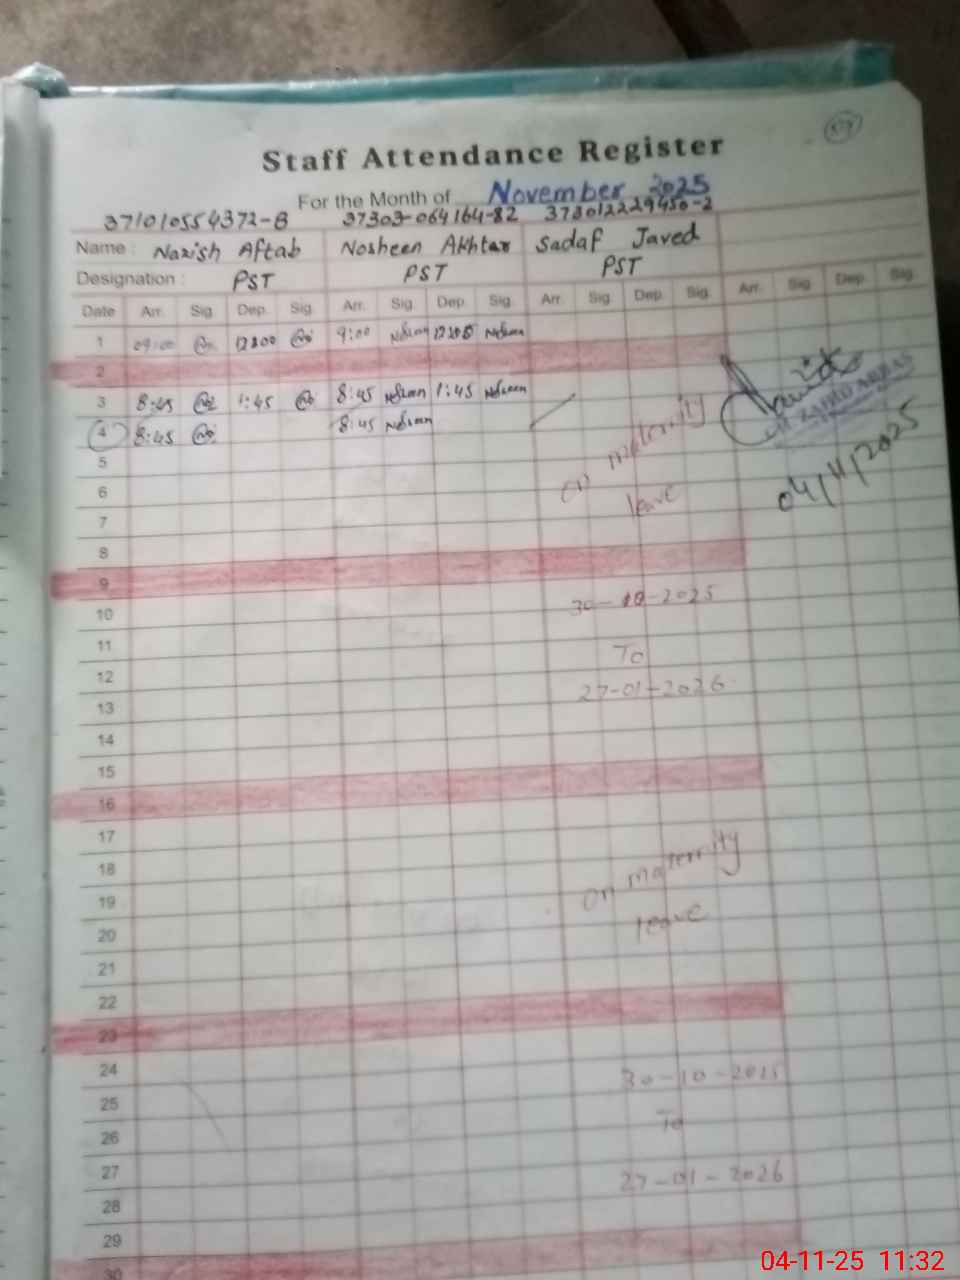 Staff Attendance Register
For the Month of November 2025
371010554372-8 37303-064164-82 373012229450-2
Name : Nazish Aftab Nosheen Akhtar Sadaf Javed
Designation : PST PST PST
Date Arr. Sig. Dep. Sig. Arr. Sig. Dep. Sig. Arr. Sig. Dep. Sig. Arr. Sig. Dep. Sig.
1 09:00 12:00 9:00 Nosheen Nosheen
2
3 8:45 1:45 8:45 Nosheen 1:45 Nosheen
4 8:45 8:45 Nosheen
on maternity
leave
ZAHID ABBAS
04/11/2025
5
6
7
8
9
10 30-10-2025
11
To
12
27-01-2026
13
14
15
16
17
18
on maternity
19
leave
20
21
22
23
24 30-10-2025
25
To
26
27 27-01-2026
28
29
30
04-11-25 11:32